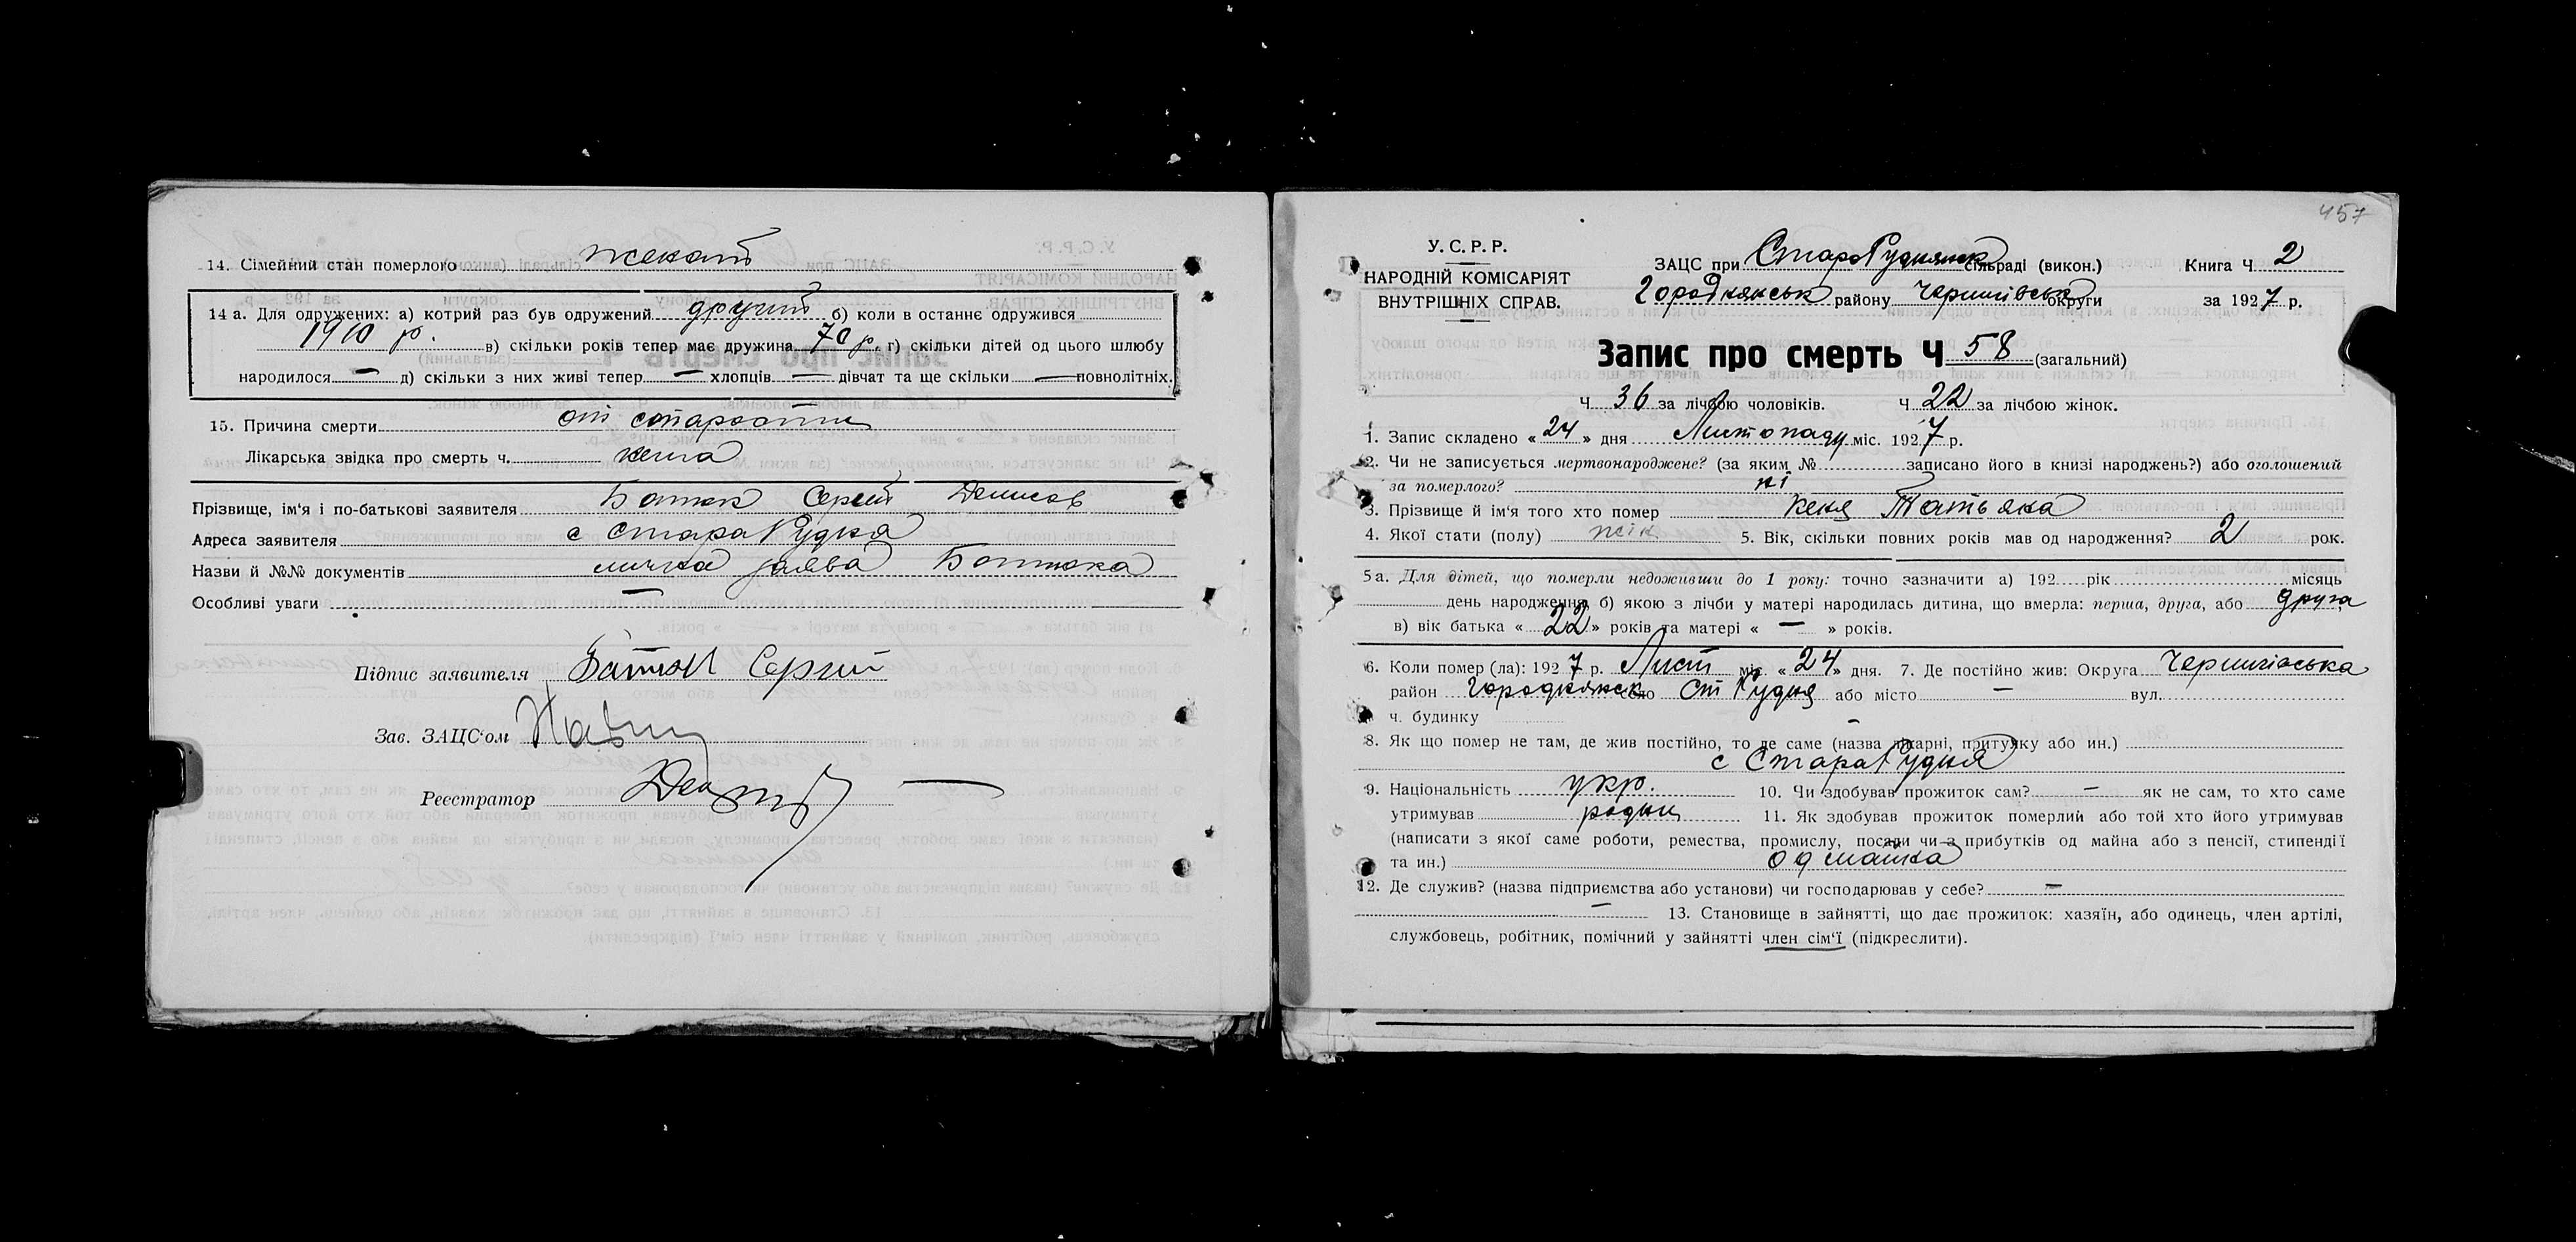 14. Сімейний стан померлого женат
14 а. Для одружених: а) котрий раз був одружений другий б) коли в останнє одружився
1910 р. в) скільки років тепер має дружина 70 р. г) скільки дітей од цього шлюбу
народилося — д) скільки з них живі тепер — хлопців — дівчат та ще скільки — повнолітніх.
15. Причина смерти от старости
Лікарська звідка про смерть ч. нема
Прізвище, ім'я і по-батькові заявителя Батюк Сергій Денисов
Адреса заявителя с Стара Рудня
Назви й №№ документів лична заява Батюка
Особливі уваги —
Підпис заявителя Батюк Сергий
Зав. ЗАЦС'ом
Реєстратор
457
У. С. Р. Р.
НАРОДНІЙ КОМІСАРІЯТ
ВНУТРІШНІХ СПРАВ.
ЗАЦС при Старо Руднянск сільраді (викон.) Книга Ч 2
Городнянськ району Чернигівськ округи за 1927 р.
Запис про смерть Ч 58 (загальний)
Ч 36 за лічбою чоловіків. Ч 22 за лічбою жінок.
1. Запис складено « 24 » дня Листопаду міс. 1927 р.
2. Чи не записується мертвонароджене? (за яким № записано його в книзі народжень?) або оголошений
за померлого? ні
3. Прізвище й ім'я того хто помер Татьяна
4. Якої стати (полу) жін 5. Вік, скільки повних років мав од народження? 2 рок.
5а. Для дітей, що померли недоживши до 1 року: точно зазначити а) 192 рік місяць
день народження, б) якою з лічби у матері народилась дитина, що вмерла: перша, друга, або друга
в) вік батька « 22 » років та матері « — » років.
6. Коли помер (ла): 1927 р. Лист міс. « 24 » дня. 7. Де постійно жив: Округа Чернигівська
район Городнянск село Ст Рудня або місто — вул.
ч. будинку —
8. Як що помер не там, де жив постійно, то де саме (назва лікарні, притулку або ин.)
с Стара Рудня
9. Національність укр. 10. Чи здобував прожиток сам? — як не сам, то хто саме
утримував родни 11. Як здобував прожиток померлий або той хто його утримував
(написати з якої саме роботи, ремества, промислу, посади чи з прибутків од майна або з пенсії, стипендії
та ин.) од майна
12. Де служив? (назва підприємства або установи) чи господарював у себе? —
— 13. Становище в зайнятті, що дає прожиток: хазяїн, або одинець, член артілі,
службовець, робітник, помічний у зайнятті член сім'ї (підкреслити).